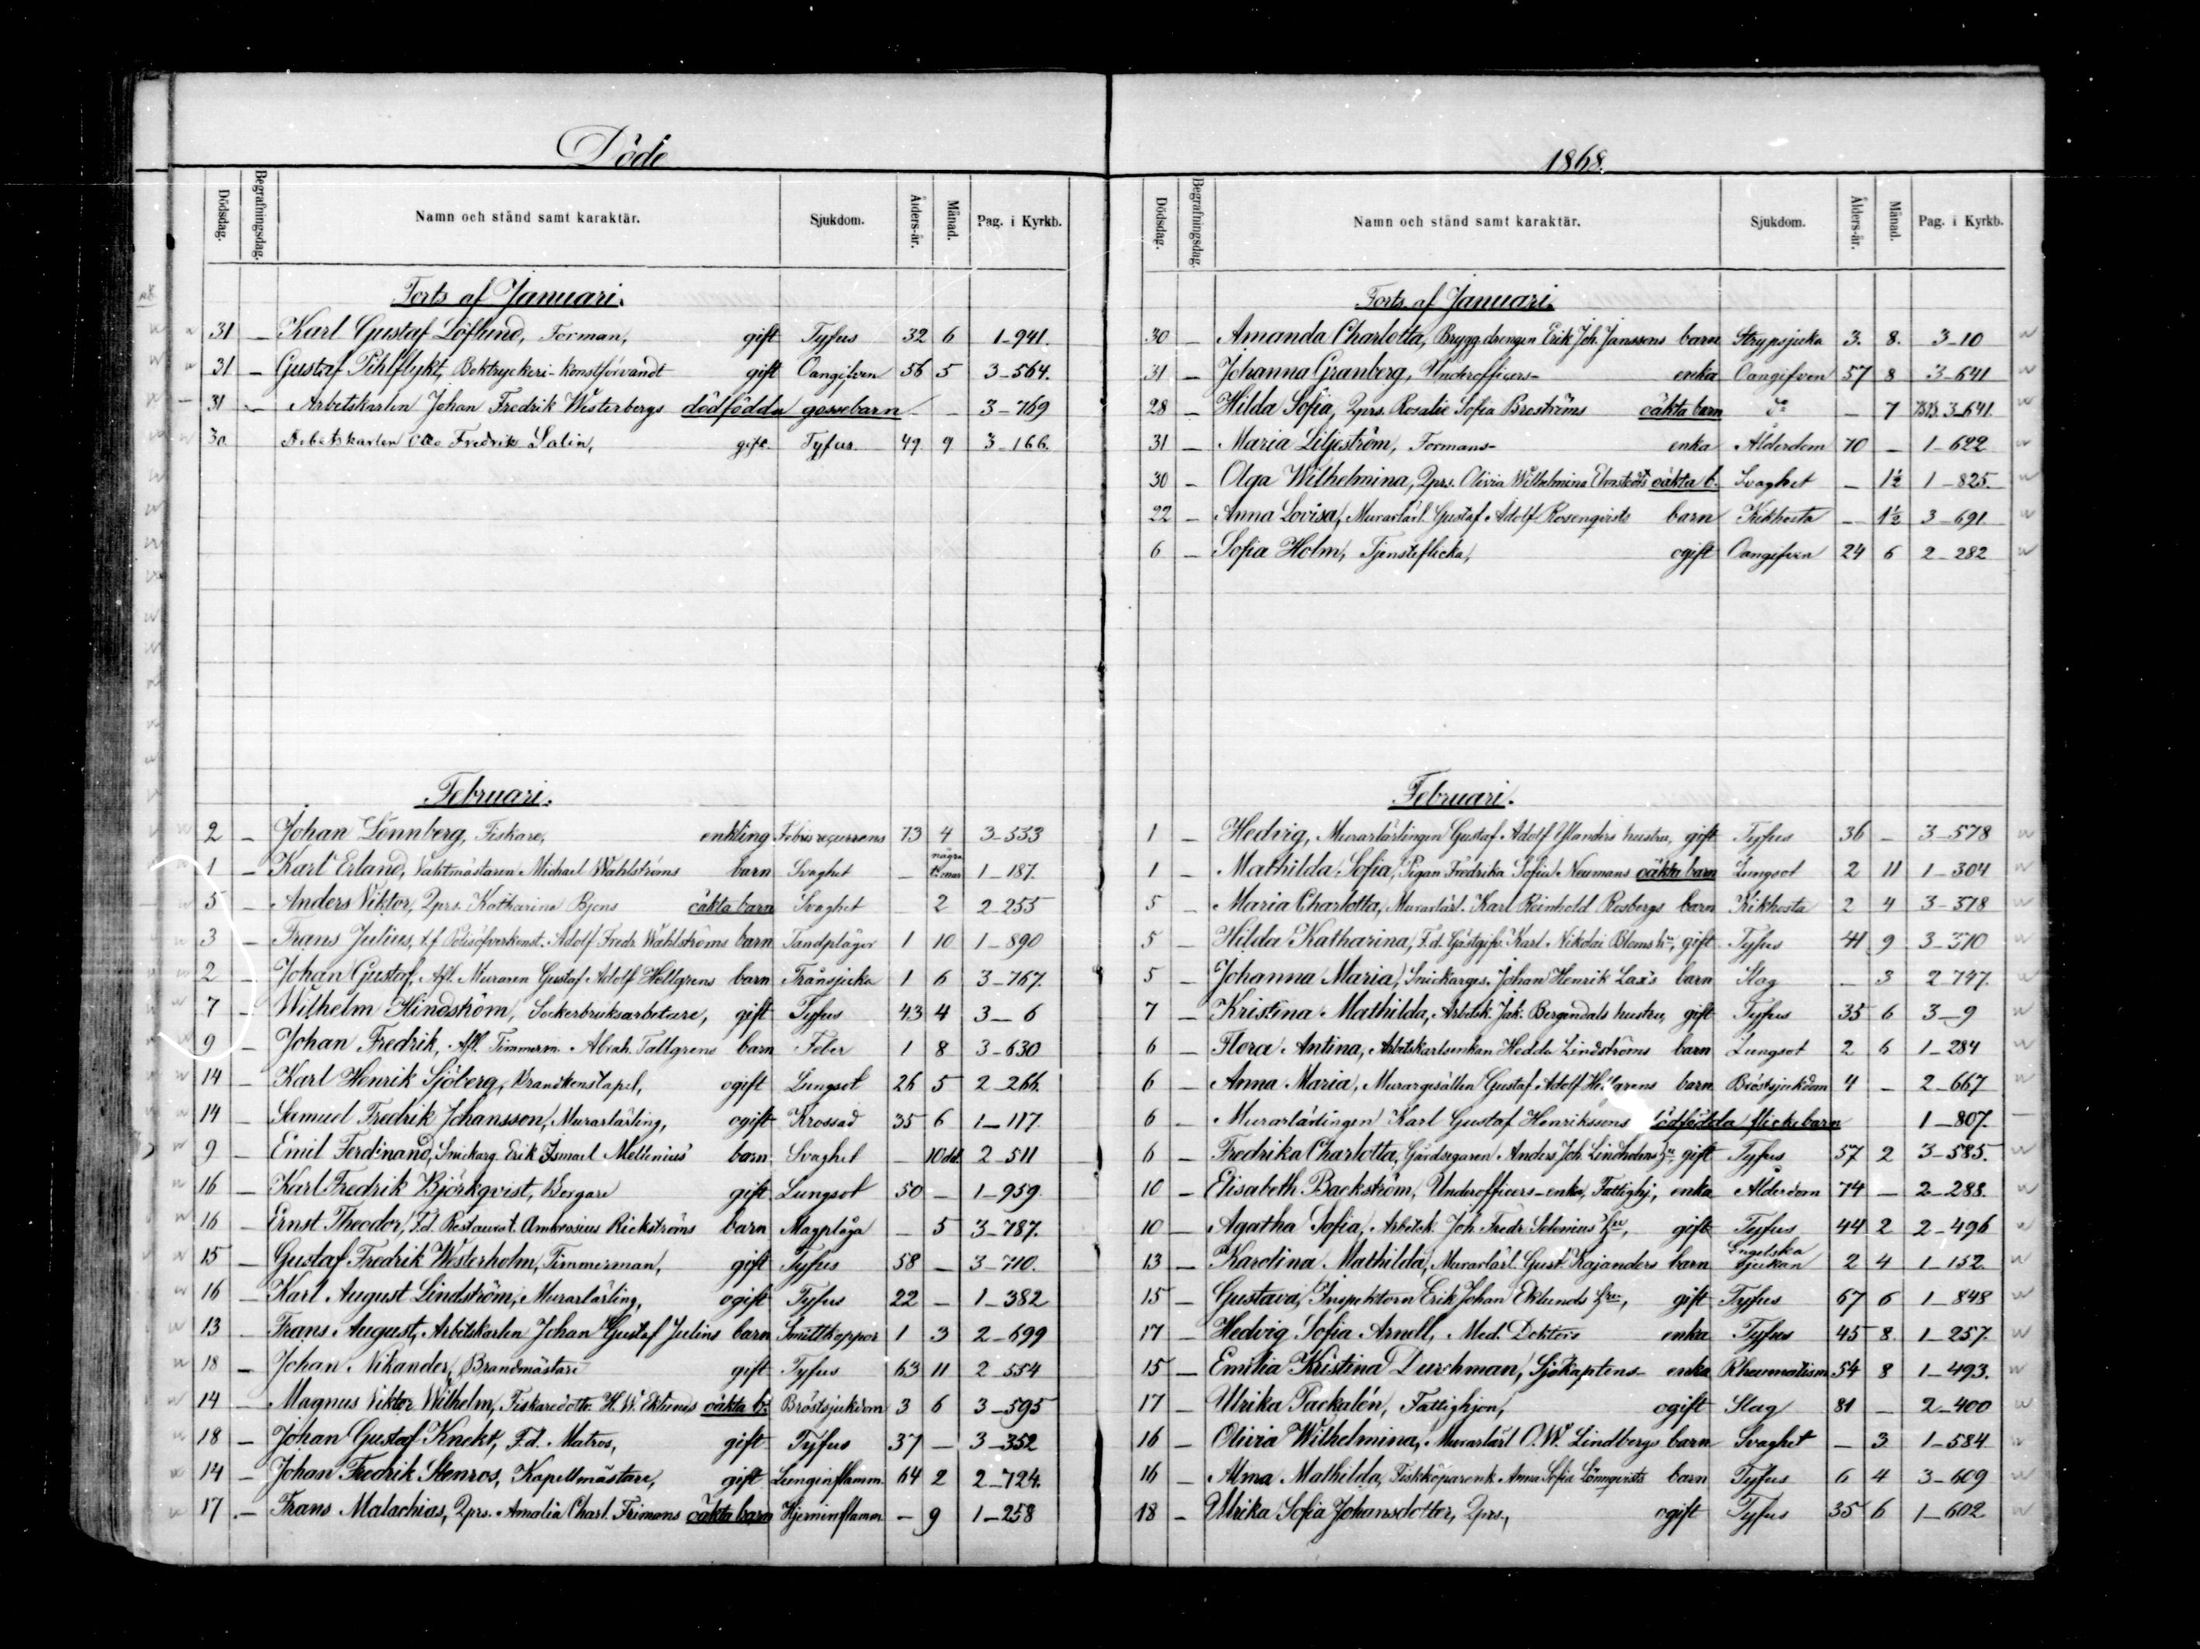 Döde
Dödsdag. Begrafningsdag. Namn och stånd samt karaktär. Sjukdom. Ålders-år. Månad. Pag. i Kyrkb.
Forts af Januari.
31 — Karl Gustaf Löflund, Forman, gift Tyfus 32 6 1-941.
31 — Gustaf Pihlflykt, Boktryckeri-konstförvandt gift Oangifven 56 5 3-564.
31 — Arbetskarlen Johan Fredrik Westerbergs dödfödda gossebarn — — 3-769
30 Arbetskarlen Otto Fredrik Salin, gift. Tyfus. 49. 9. 3-166.
Februari.
2 — Johan Lönnberg, Fiskare, enkling Febris recurrens 73 4 3-533
1 — Karl Erland, Vaktmästaren Michael Wahlströms barn Svaghet — några timar 1-187.
5 — Anders Viktor, Qprs. Katharina Bjens oäkta barn Svaghet 2 2-255
3 — Frans Julius, t.f. Polisöfverkonst. Adolf Fredr. Wahlströms barn Tandplågor 1 10 1-890
2 — Johan Gustaf, Afl. Muraren Gustaf Adolf Hellgrens barn Trånsjuka 1 6 3-767.
7 — Wilhelm Hindström, Sockerbruksarbetare, gift Tyfus 43 4 3-6
9 — Johan Fredrik, Afl. Timmerm. Abrah. Tallgrens barn Feber 1 8 3-630
14 — Karl Henrik Sjöberg, Brandkonstapel, ogift Lungsot 26 5 2-266.
14 — Samuel Fredrik Johansson, Murarlärling, ogift Krossad 35 6 1-117.
9 — Emil Ferdinand, Snickarg. Erik Ismael Mellenius' barn Svaghet — 10 dd. 2-511
16 — Karl Fredrik Björkqvist, Borgare gift Lungsot 50 — 1-959.
16 — Ernst Theodor, F.d. Restaurat. Ambrosius Rickströms barn Magplåga — 5 3-787.
15 — Gustaf Fredrik Westerholm, Timmerman, gift Tyfus 58 — 3-710.
16 — Karl August Lindström, Murarlärling, ogift Tyfus 22 — 1-382
13 — Frans August, Arbetskarlen Johan Gustaf Julins barn Smittkoppor 1 3 2-699
18 — Johan Nikander, Brandmästare gift Tyfus 63 11 2-554
14 — Magnus Viktor Wilhelm, Fiskaredottr. H. W. Eklunds oäkta b. Bröstsjukdom 3 6 3-595
18 — Johan Gustaf Knekt, F.d. Matros, gift Tyfus 37 — 3-352
14 — Johan Fredrik Stenros, Kapellmästare, gift Lunginflamm. 64 2 2-724.
17 — Frans Malachias, Qprs. Amalia Charl. Frimans oäkta barn Hjerninflamm. — 9 1-258
1868.
Dödsdag. Begrafningsdag. Namn och stånd samt karaktär. Sjukdom. Ålders-år. Månad. Pag. i Kyrkb.
Forts af Januari.
30 — Amanda Charlotta, Bryggdrengen Erik Joh. Janssons barn Strypsjuka 3. 8. 3-10
31 — Johanna Granberg, Underofficers- enka Oangifven 57 8 3-641
28 — Hilda Sofia, Qprs. Rosalie Sofia Broströms oäkta barn d:o — 7 3-641.
31 — Maria Liljeström, Formans- enka Ålderdom 70 — 1-622
30 — Olga Wilhelmina, Qprs. Olivia Wilhelmina oäkta b. Svaghet — 1½ 1-825.
22 — Anna Lovisa, Murarlärl. Gustaf Adolf Rosenqvists barn Kikhosta — 1½ 3-691
6 — Sofia Holm, Tjensteflicka, ogift Oangifven 24 6 2-282
Februari.
1 — Hedvig, Murarlärlingen Gustaf Adolf Ylanders hustru, gift Tyfus 36 — 3-578
1 — Mathilda Sofia, Pigan Fredrika Sofia Neumans oäkta barn Lungsot 2 11 1-304
5 — Maria Charlotta, Murarlärl. Karl Reinhold Rosbergs barn Kikhosta 2 4 3-378
5 — Hilda Katharina, F.d. Gästgifv. Karl Nikolai Bloms hu, gift Tyfus 41 9 3-310
5 — Johanna Maria, Snickarges. Johan Henrik Lax's barn Slag — 3 2-747.
7 — Kristina Mathilda, Arbetsk. Jak. Bergendals hustru, gift Tyfus 35 6 3-9
6 — Flora Antina, Arbetskarlsenkan Hedda Lindströms barn Lungsot 2 6 1-284
6 — Anna Maria, Murargesällen Gustaf Adolf barn Bröstsjukdom 4 — 2-667
6 — Murarlärlingen Karl Gustaf Henrikssons dödfödda flickebarn 1-807.
6 — Fredrika Charlotta, Gårdsegaren Anders Joh. Lindholms hu, gift Tyfus 57 2 3-585.
10 — Elisabeth Backström, Underofficers-enka, Fattighj., enka Ålderdom 74 — 2-288.
10 — Agatha Sofia, Arbetsk. Joh. Fredr. Selenius' hu, gift Tyfus 44 2 2-496
13 — Karolina Mathilda, Murarlärl. Gust. Kajanders barn Engelska sjukan 2 4 1-152
15 — Gustava, Inspektorn Erik Johan Eklunds hu, gift Tyfus 67 6 1-848
17 — Hedvig Sofia Arnell, Med. Doktors enka Tyfus 45 8. 1-257.
15 — Emilia Kristina Durchman, Sjökaptens- enka Rheumatism 54 8 1-493.
17 — Ulrika Packalén, Fattighjon, ogift Slag 81 — 2-400
16 — Olivia Wilhelmina, Murarlärl. O. W. Lindbergs barn Svaghet — 3 1-584
16 — Alma Mathilda, Fiskköparenk. Anna Sofia Lönnqvists barn Tyfus 6 4 3-609
18 — Ulrika Sofia Johansdotter, Qprs., ogift Tyfus 35 6 1-602